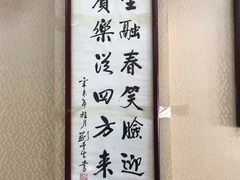 生融春笑臉迎
賓樂從四方来
辛未年桂月劉